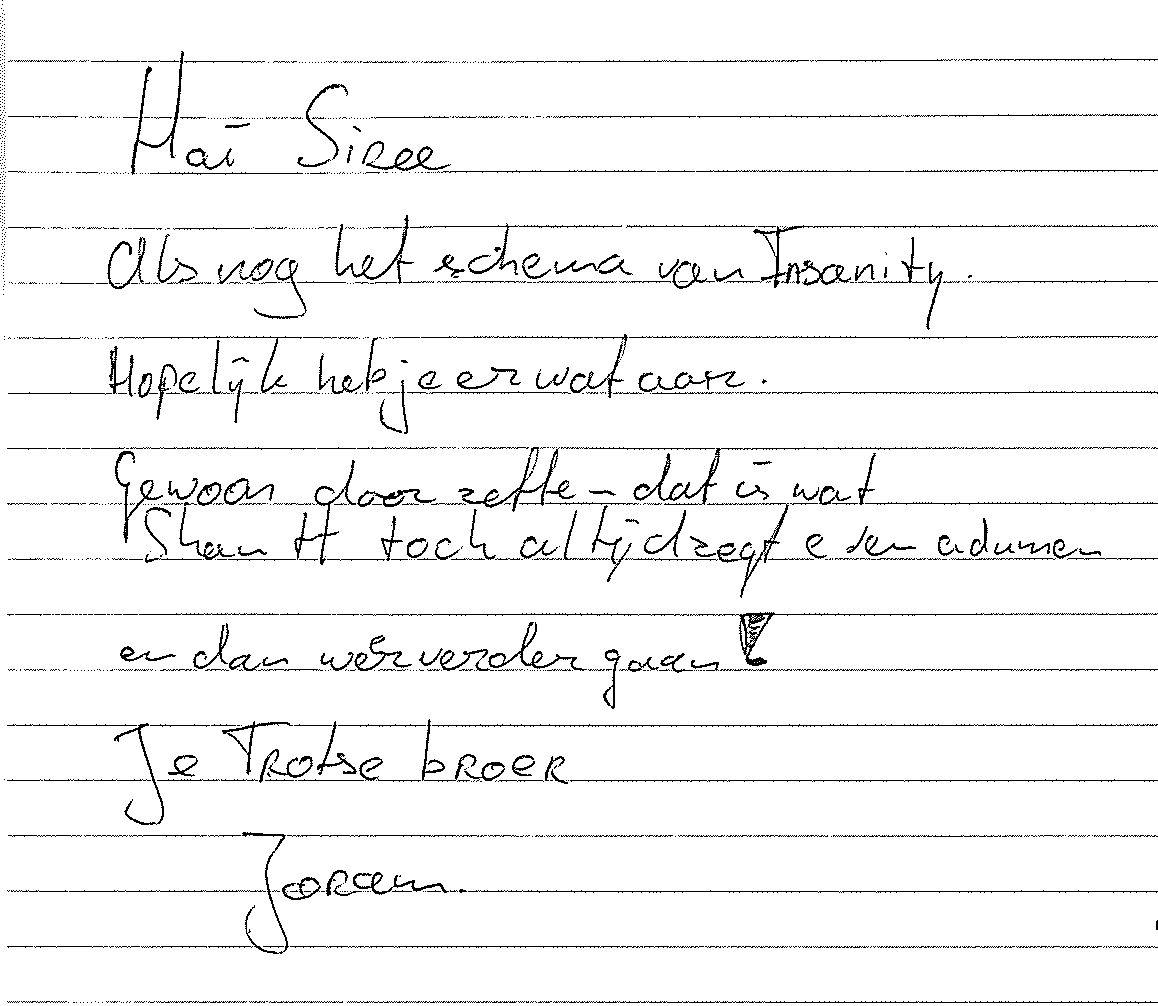 Haï Siree
Alsnog het schema van Insanity.
Hopelijk heb je er wat aan.
Gewoon door zette - dat is wat
Shaun H toch altijd zegt even ademen
en dan weer verder gaan!
Je Trotse broer
Joram.